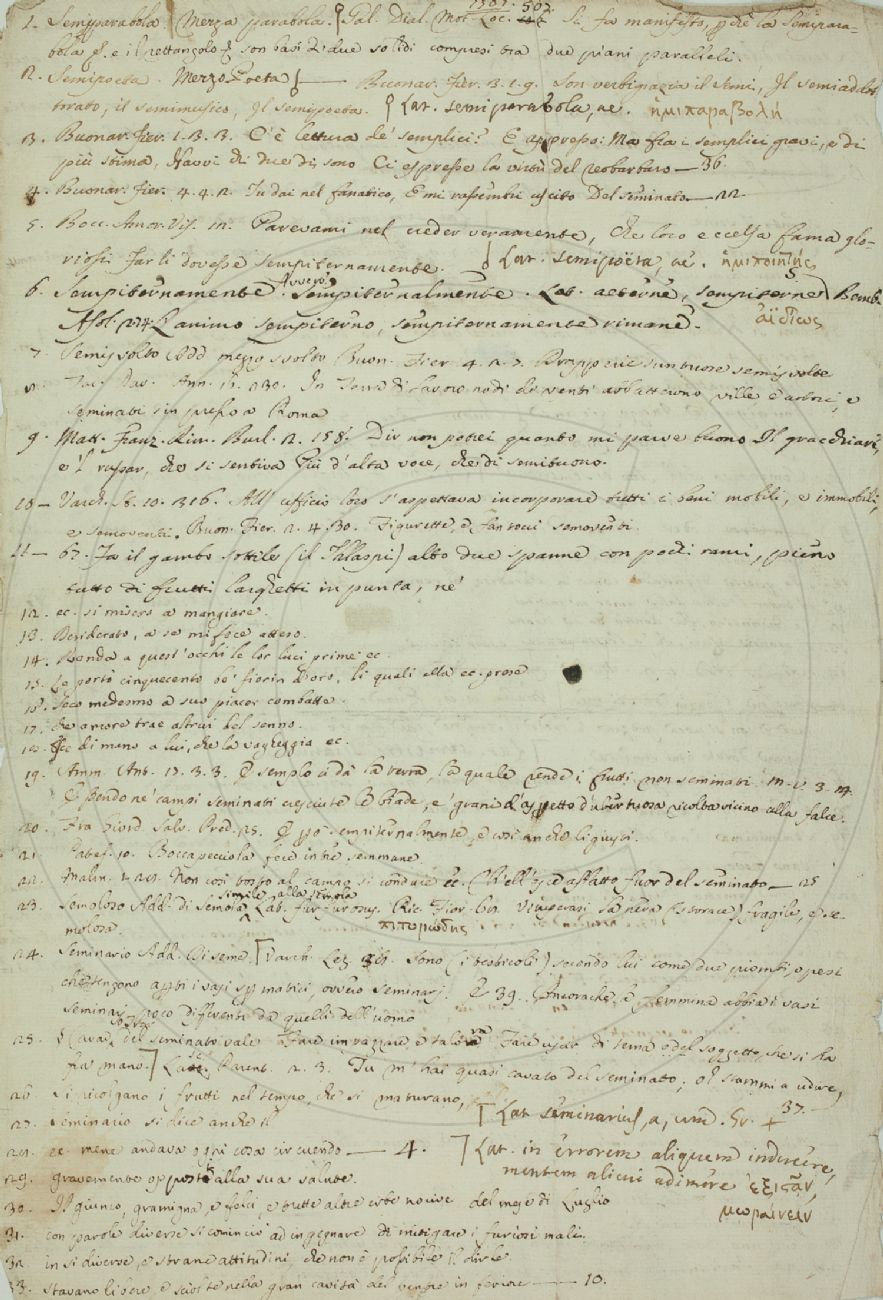 502. 503.
1. Semiparabola. Mezza parabola. Gal. Dial. Mot. Loc. Si fa manifesto, perchè la Semipara-
bola e il rettangolo son basi di due solidi compresi tra due piani paralleli.
2. Semipoeta. Mezzo Poeta Buonar. Fier. 3. 1. 9. Son verbigrazia il semi, Il semiaddot-
torato, il semimusico, Il semipoeta. Lat. semiparabola, ae. ἡμιπαραβολή
3. Buonar. Fier. 1. 3. 3. C'è lettura de' semplici? E appresso: Ma fra i semplici gravi, e di
più stima, Havvi chi due dì, sono Ci espresse la virtù del reobarbaro — 36.
4. Buonar. Fier. 4. 4. 2. Tu dai nel fanatico, E mi rassembri uscito Del seminato — 22
5. Bocc. Amor. Vis. Parevami nel veder veramente, Che loco eccelsa fama glo-
riosa Farli dovesse sempiternamente. Lat. semipoëta, ae. ἡμιποιητής
6. Sempiternamente. Avverb. Sempiternalmente. Lat. aeternè, sempiternè Bemb.
Asol. L'animo sempiterno, sempiternamente rimane. ἀϊδίως
7. Semisvolto Add. mezzo svolto Buon. Fier. 4. 2. 7. Drapperie suntuose semisvolte
8. Tac. Dav. Ann. 130. In Terra di Lavoro nodi di venti abbatterono ville e arbori, e
seminati sin presso a Roma
9. Matt. Franz. Rim. Burl. 2. 158. Dir non potrei quanto mi parve buono Il gracchiare,
e 'l raspar, che si sentiva Più d'alta voce, che di semibuono.
10 — Varch. St. 10. 316. All' ufficio loro s'aspettava incorporare tutti i beni mobili, e immobili,
e semoventi. Buon. Fier. 2. 4. 30. Figurette, e fantocci semoventi.
11 — 67. Fa il gambo sottile (il Thlaspi) alto due spanne con pochi rami, pieno
tutto di frutti larghetti in punta, nè
12. ec. si misero a mangiare.
13. Desiderato, a se mi fece atteso.
14. Renda a quest' occhi le lor luci prime ec.
15. Le portò cinquecento be' fiorin d'oro, li quali ella ec. prese
16. Seco medesmo a suo piacer combatte.
17. Che amore trae altrui del senno.
18. di mano a lui, che la vagheggia ec.
19. Amm. Ant. 17. 3. 3. Esemplo ci dà la terra, la quale rende i frutti non seminati M. V. 3. 14.
Essendo ne' campi seminati cresciute le biade, e' grani d'aspetto d'ubertuosa ricolta vicino alla falce.
20. Fra Giord. Salv. Pred. 25. sempiternalmente, e così anche li giusti.
21. Pataff. 10. Boccapecciola fece in tre semmane.
22. Malm. Non così tosto al campo si conduce ec. Ch'ell' esce affatto fuor del seminato — 25
23. Semoloso Add. di Semola, simile alla semola Lat. furfurosus. Ric. Fior. Vituperasi la nera (storace) fragile, e se-
molosa. πιτυρώδης
24. Seminario Add. Di seme. Varch. Lez. Sono (i testicoli) secondo lui come due piombi, o pesi
che tengono aperti i vasi spermatici, ovvero seminarj. E 39. Ancorachè la femmina abbia i vasi
seminarj poco differenti da quelli dell'uomo
25. Cavar del seminato vale Fare impazzare e talora Fare uscir di tema o del soggetto, che si ha
fra mano. Parent. 2. 3. Tu m' hai quasi cavato del seminato; oh stammi a udire,
26. Si ricolgano i frutti nel tempo, che si maturano, Lat. seminarius, a, um. Gr. + 37.
27. Seminario si dice anche il
28. ec. mene andava ogni cosa circuendo — 4. Lat. in errorem aliquem inducere,
29. gravemente opposto alla sua salute. mentem alicui adimere ἐξιστᾶν,
30. Il giunco, gramigna, e felci, e tutte altre erbe nocive del mese di Luglio μωραίνειν
31. con parole diverse si cominciò ad ingegnare di mitigare i furiosi mali.
32. in sì diverse, e strane attitudini, che non è possibile il dirle.
33. stavano libere, e sciolte nella gran cavità del ventre inferiore — 10.